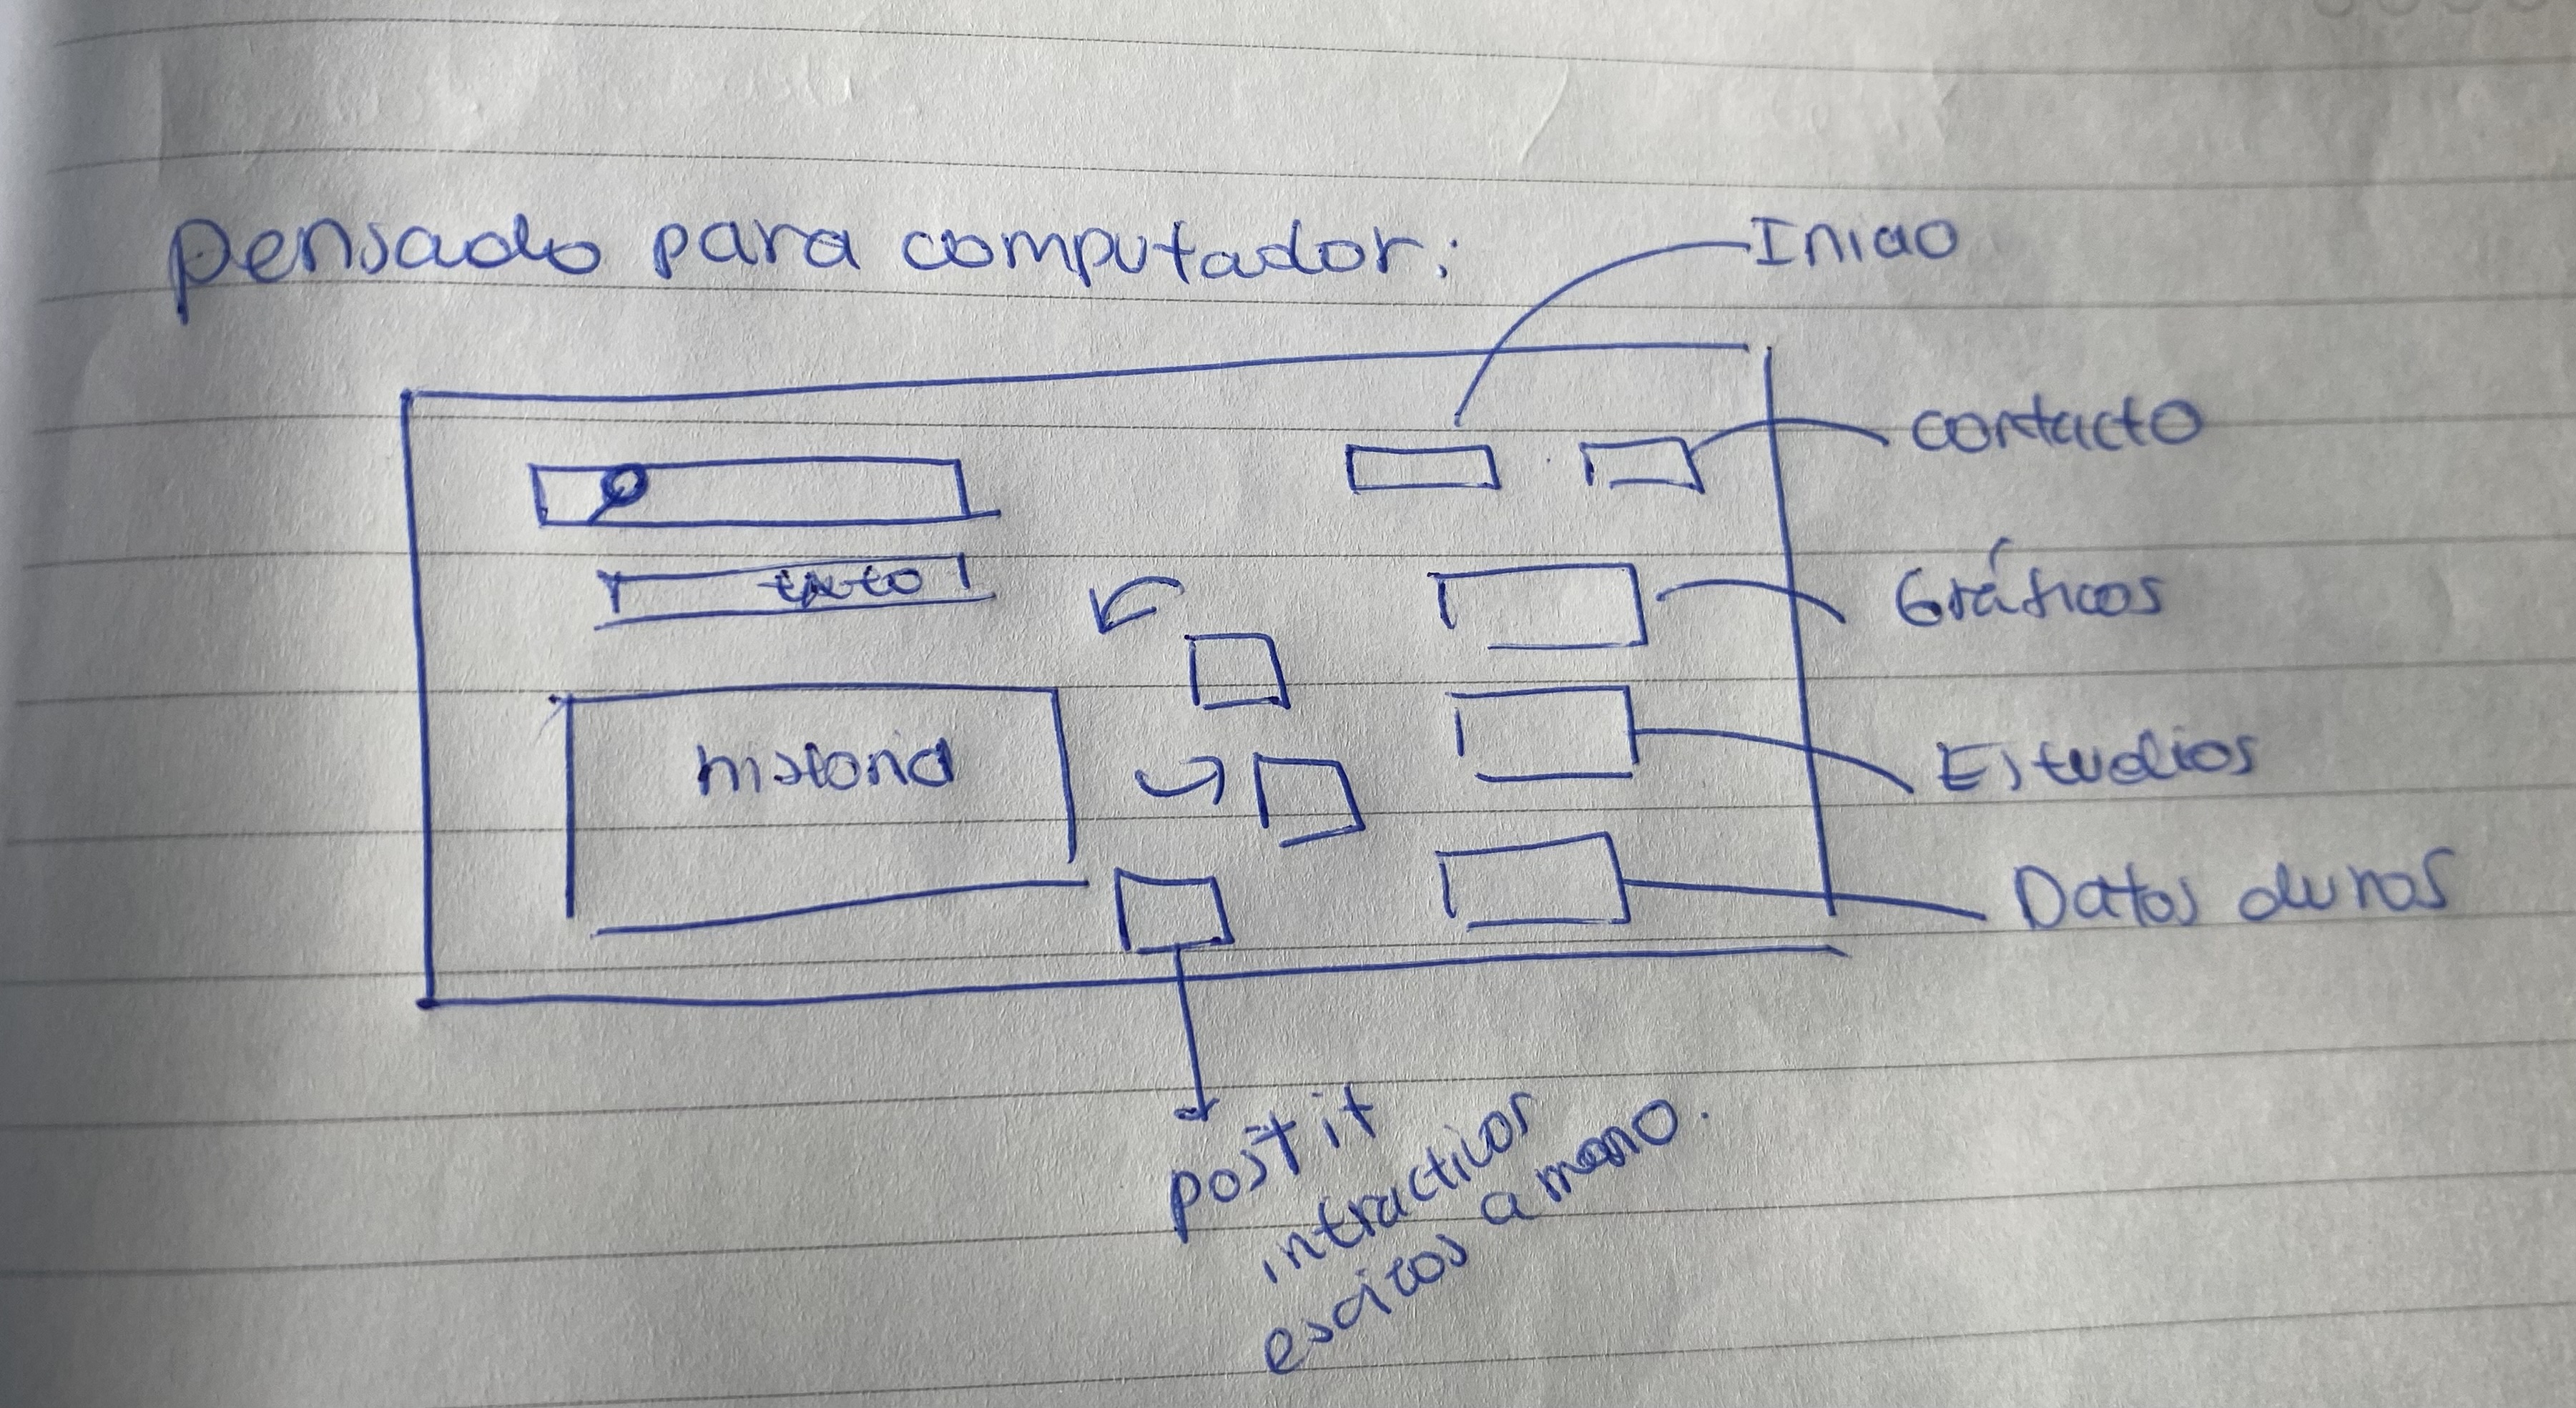 pensado para computador:
Inicio
contacto
texto
Gráficos
historia
Estudios
Datos duros
post it
intractivos
escritos a mano.